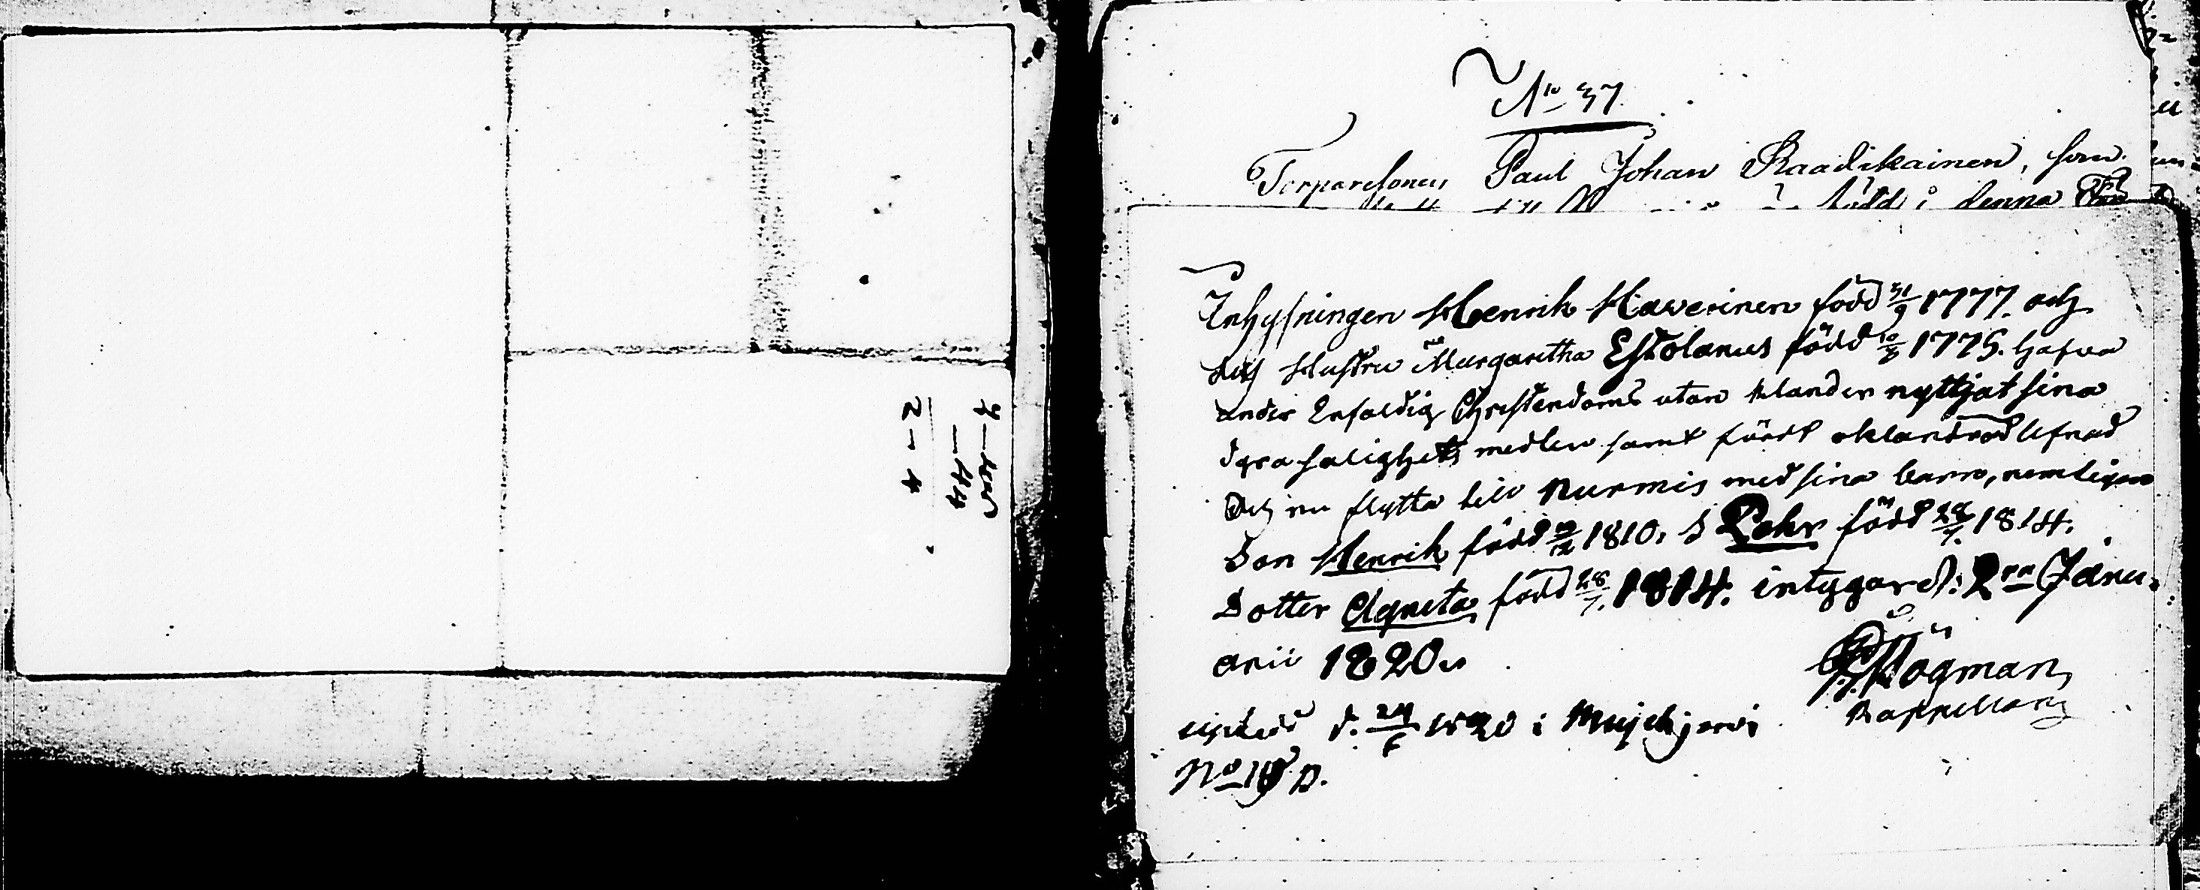 No 37
Torparesonen Paul Johan Raadikainen, som
denna
Inhysningen Henrik Häverinen född 1777. och
des Hustru Margaretha Estolanus född 10/3 1775. hafva
under Enfaldig Christendoms utan klander nyttjat sina
dyra salighets medlen samt fördt oklandrad lefnad
Och nu flytta till Nurmis med sina barn, nemligen
Son Henrik född 1810. S Pehr född 28/7. 1814.
Dotter Agneta född 28/7. 1814. intygar d: 2ra Janu-
arii 1820.
Högman
Kappellan
d. 24/6 1820 i Mujehjervi
No 19 D.